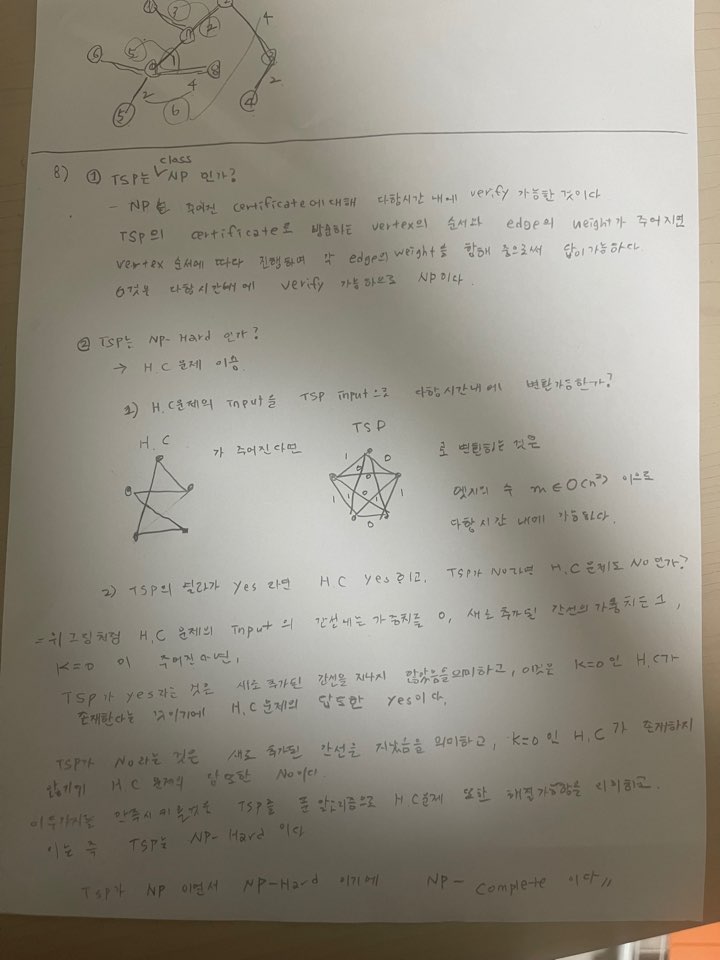 8) ① TSP는 class NP 인가?
- NP는 주어진 certificate에 대해 다항시간 내에 verify 가능한 것이다
TSP의 certificate로 방문하는 vertex의 순서와 edge의 weight가 주어지면
vertex 순서에 따라 진행하며 각 edge의 weight을 합해 줌으로써 답이 가능하다.
이것은 다항시간내에 verify 가능하므로 NP이다.
② TSP는 NP-Hard 인가?
→ H.C 문제 이용.
1) H.C문제의 Input을 TSP input으로 다항시간내에 변환가능한가?
H.C
가 주어진다면
TSP
로 변환하는 것은
엣지의 수 m∈O(n²) 이므로
다항시간 내에 가능하다.
2) TSP의 결과가 Yes 라면 H.C Yes 이고, TSP가 No라면 H.C문제도 No 인가?
위 그림처럼 H.C 문제의 Input의 간선에는 가중치를 0, 새로 추가된 간선의 가중치는 1,
K=0 이 주어진다면,
TSP가 yes라는 것은 새로 추가된 간선을 지나지 않았음을 의미하고, 이것은 K=0인 H.C가
존재한다는 것이기에 H.C문제의 답또한 yes이다.
TSP가 No라는 것은 새로 추가된 간선을 지났음을 의미하고, K=0인 H.C가 존재하지
않기에 H.C 문제의 답 또한 No이다.
이 두가지를 만족시 TSP를 푼 알고리즘으로 H.C문제 또한 해결가능함을 의미하고.
이는 즉 TSP는 NP-Hard 이다
TSP가 NP 이면서 NP-Hard 이기에 NP-Complete 이다.